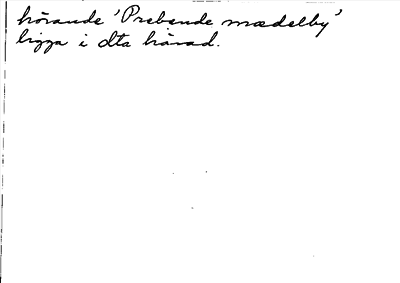 hörande 'Prebende mædelby'
ligga i dta härad.